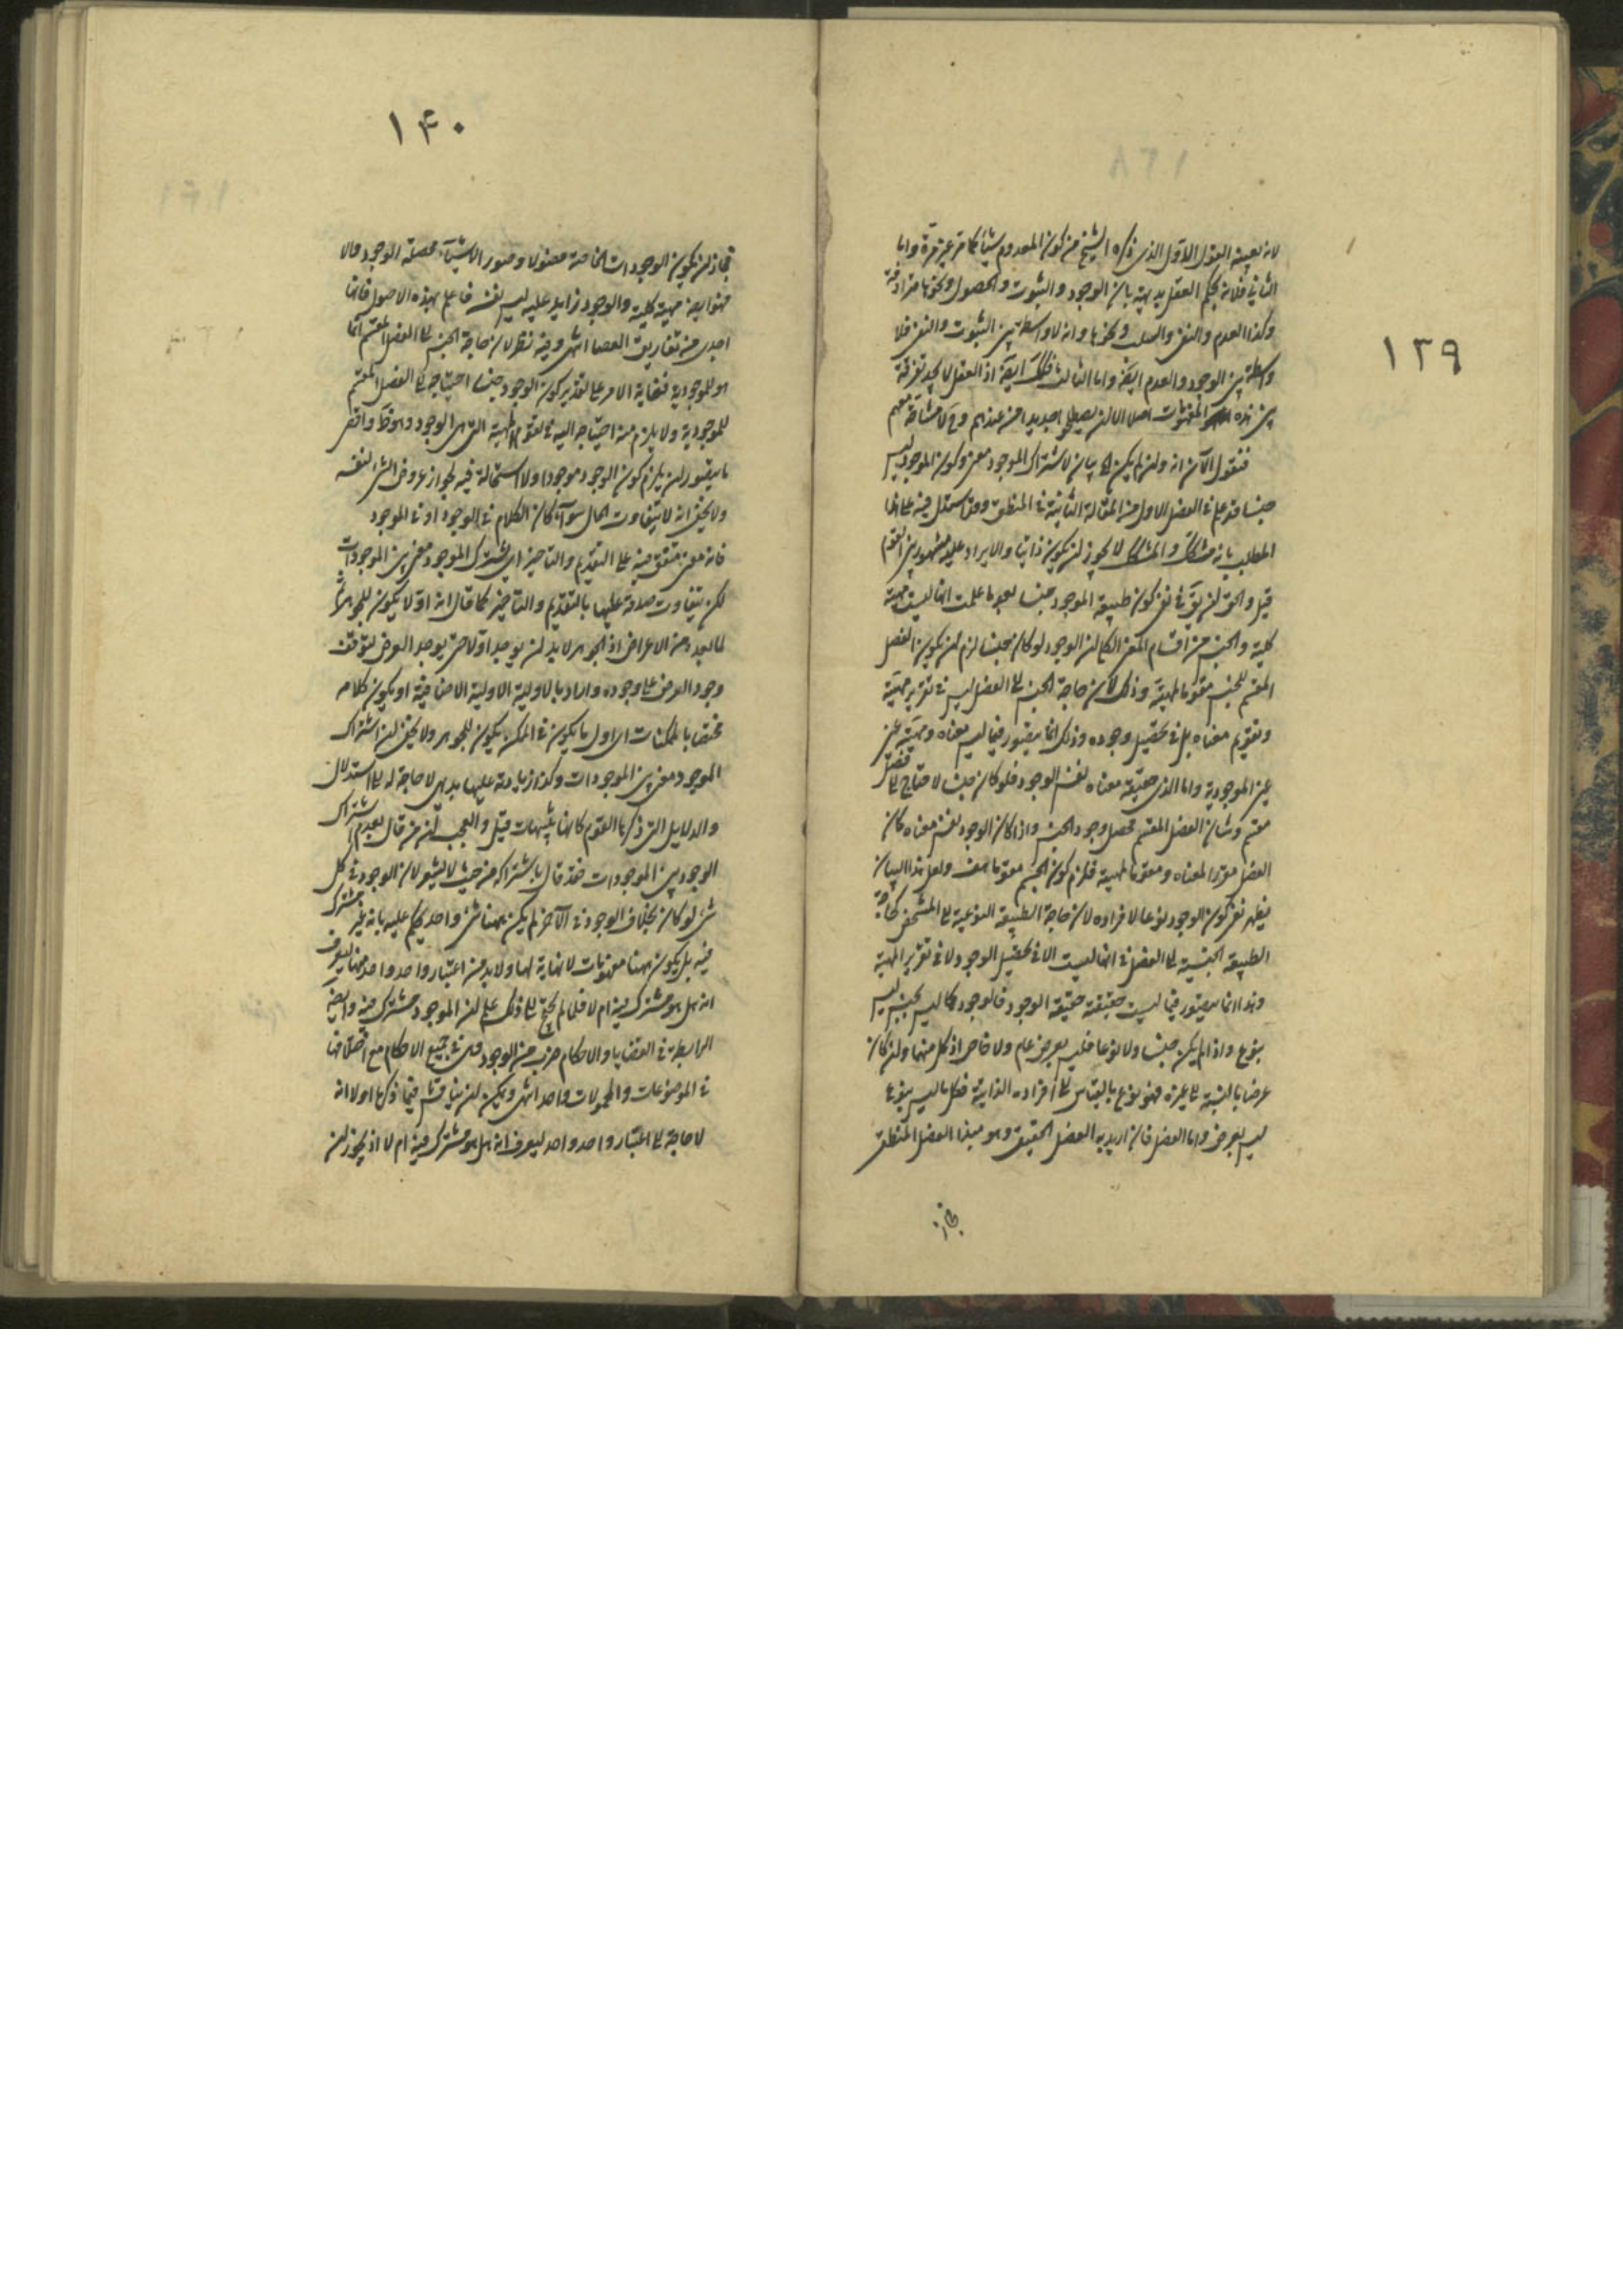 ١٣٩
لانه بعينه القول الاول الذى ذكره الشيخ من كون المعدوم شيئا كما مر غير مرة واما
الثانى فلانه يحكم العقل بديهة بان الوجود والثبوت والحصول ونحوها مترادفة
وكذا العدم والنفى والسلب ونحوها وانه لا واسطة بين الثبوت والنفى فلا
واسطة بين الوجود والعدم ايضا واما الثالث فلذلك ايضا اذ العقل لا يجد تفرقة
بين هذه المفهومات اصلا الا ان يصطلح جديدا من عندهم وح لا مشاحة معهم
فنقول الآن انه وان لم يكن بيان لاشتراك الموجود معنى وكون الموجود ليس
جنسا قد علم فى الفصل الاول من المقالة الثانية فى المنطق وقد استدل فيه على هذا
المطلب بانه مشكك والمشكك لا يجوز ان يكون ذاتيا والايراد عليه مشهور بين القوم
قيل والحق ان يق فى نفى كون طبيعة الموجود جنسا بعد ما علمت انها ليست مهية
كلية والجنس من اقسام المعنى الكلى ان الوجود لو كان جنسا لزم ان يكون الفصل
المقسم للجنس مقوما لمهيته وذلك لان حاجة الجنس الى الفصل ليس فى تقرير مهيته
وتقويم معناه بل فى تحصيل وجوده وذلك انما يتصور فيما ليس معناه ومهيته عين
غير الموجودية واما الذى حقيقته معناه نفس الوجود فلو كان جنسا لاحتاج الى فصل
مقسم وشان الفصل المقسم تحصل وجود الجنس واذا كان الوجود نفس معناه كان
الفصل مقررا لمعناه ومقوما لمهيته فلزم كون المقسم مقوما هف ولعل هذا البيان
يظهر نفى كون الوجود نوعا لافراده لان حاجة الطبيعة النوعية الى المشخص كحاجة
الطبيعة الجنسية الى الفصل فى انها ليست الا فى تحصيل الوجود لا فى تقرير المهية
وهذا انما يتصور فيما ليست حقيقته حقيقة الوجود فالوجود كما ليس بجنس ليس
بنوع واذا لم يكن جنسا ولا نوعا فليس بعرض عام ولا خاص اذ كل منهما وان كان
عرضا بالنسبة الى غيره فهو نوع بالقياس الى افراده الذاتية فكل ما ليس بنوع
ليس بعرض واما الفصل فان اريد به الفصل الحقيقى وهو مبدا الفصل المنطقى
فجاز
١۴٠
فجاز ان يكون الوجودات الخاصة فصولا وصور الاشياء محصلة الوجود والا
فهو ايضا مهية كلية والوجود زايد عليه ليس نفسه فاعلم بهذه الاصول فانها
اجدى من تفاريق العصا انتهى وفيه نظر لان حاجة الجنس الى الفصل المقسم انما
هو للموجودية فغاية الامر على تقدير كون الوجود جنسا احتياجه الى الفصل المقسم
للموجودية ولا يلزم منه احتياجه اليه فى تقوم المهية التى هى الوجود وهو ظ واقصى
ما يتصور ان يلزم كون الوجود موجودا ولا استحالة فيه لجواز عروض الشئ لنفسه
ولا يخفى انه لا يتفاوت الحال سواء كان الكلام فى الوجود او فى الموجود
فانه معنى متفق فيه على التقديم والتاخير اى يشترك الموجود معنى بين الموجودات
لكن يتفاوت صدقه عليها بالتقديم والتاخير كما قال انه اولا يكون للجوهر ثم
لما بعده من الاعراض اذ الجوهر لابد ان يوجد اولا حتى يوجد العرض لتوقف
وجود العرض على وجوده واراد بالاولية الاولية الاضافية او يكون كلامه
مختصا بالممكنات اى اول ما يكون فى الممكن يكون للجوهر ولا يخفى ان اشتراك
الموجود معنى بين الموجودات وكذا زيادته عليها بديهى لا حاجة له الى استدلال
والدلايل التى ذكرها القوم كانها تنبيهات قيل والعجب ان من قال بعدم اشتراك
الوجود بين الموجودات فقد قال باشتراكه من حيث لا يشعر لان الوجود فى كل
شئ لو كان بخلاف الوجود فى الآخر لم يكن ههنا شئ واحد يحكم عليه بانه غير مشترك
فيه بل يكون ههنا مفهومات لا نهاية لها ولابد من اعتبار واحد واحد منها ليعرف
انه هل هو مشترك فيه ام لا فلما لم يحتج الى ذلك علم ان الموجود مشترك فيه وايضا
الرابطة فى القضايا والاحكام ضرب من الوجود وهى فى جميع الاحكام مع اختلافها
فى الموضوعات والمحمولات واحد انتهى ويمكن ان يناقش فيما ذكره اولا انه
لا حاجة الى اعتبار واحد واحد ليعرف انه هل هو مشترك فيه ام لا اذ يجوز ان